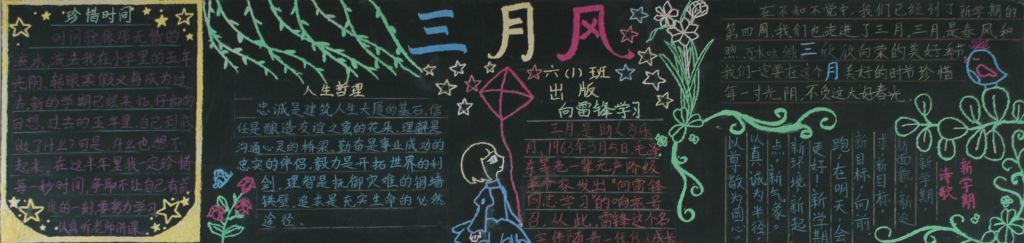 珍惜时间
时间就像那无情的
流水,流去我在小学里的五年
光阴,转眼寒假又再成为过
去,新的学期已经来临,仔细的
回想,过去的五年里,自己到底
做了什么?可是,什么也想不
起来,在这半年里我一定珍惜
每一秒时间,争取不让自己有
的一刻要努力学习
认真听老师讲课
人生哲理
忠诚是建筑人生大厦的基石,信
任是酿造友谊之蜜的花朵,理解是
沟通心灵的桥梁,勤奋是事业成功的
忠实的伴侣,毅力是开拓世界的利
剑,理智是抚御灾难的铜墙
铁壁,追求是充实生命的必然
途径。
三月风
六(1)班
出版
向雷锋学习
三月,是助人为乐
月,1963年3月5日毛泽
东等老一辈无产阶级
革命家发出"向雷锋
同志学习"的响亮号
召,从此,雷锋这个名
字伴随着一代代人成长
在不知不觉中,我们已经到了新学期的
第四周,我们也走进了三月,三月是春风和
煦,万木吐绿 三 欣欣向荣的美好季
我们一定要在这个月美好的时节珍惜
每一寸光阴,不负这大好春光。
新学期
诗歌
新学期
新面貌,新追
求,新目标,
新目标,向前
跑,在明天,会
更好,新学期
新环境,新起
点,新气象。
以真诚为半径,
以尊敬为圆心。